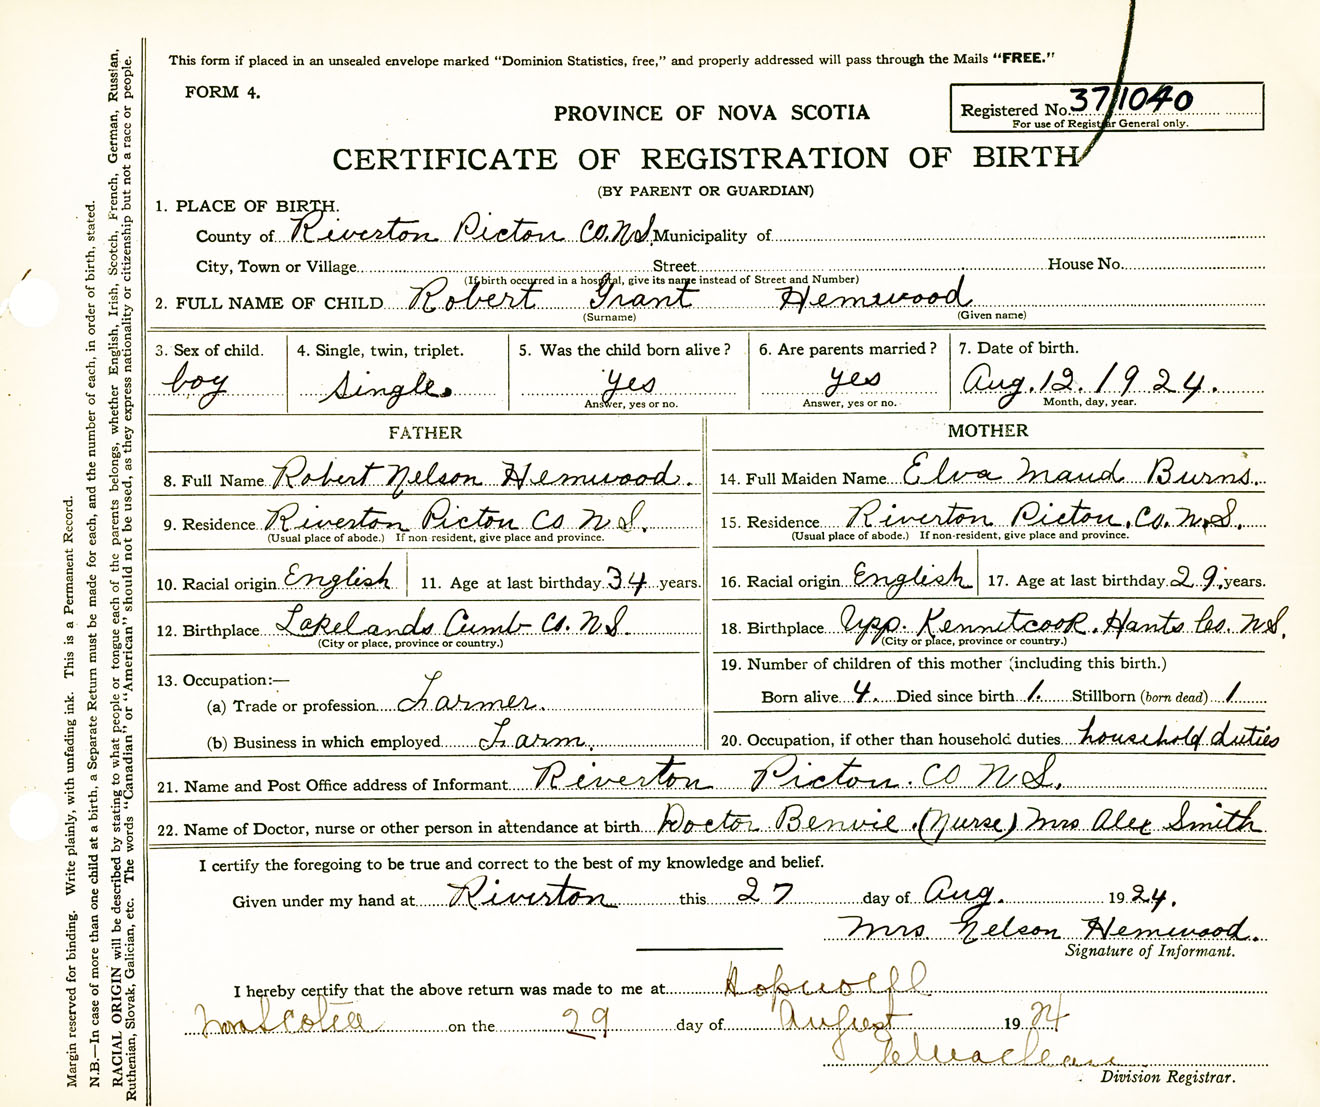 This form if placed in an unsealed envelope marked "Dominion Statistics, free," and properly addressed will pass through the Mails "FREE."
FORM 4.
PROVINCE OF NOVA SCOTIA
Registered No. 37/1040
For use of Registrar General only.
CERTIFICATE OF REGISTRATION OF BIRTH
(BY PARENT OR GUARDIAN)
1. PLACE OF BIRTH.
County of Riverton Picton Co. N.S. Municipality of
City, Town or Village Street House No.
(If birth occurred in a hospital, give its name instead of Street and Number)
2. FULL NAME OF CHILD Robert Grant Hemswood
(Surname) (Given name)
3. Sex of child. 4. Single, twin, triplet. 5. Was the child born alive? 6. Are parents married? 7. Date of birth.
boy Single. Yes Yes Aug. 12. 1924.
Answer, yes or no. Answer, yes or no. Month, day, year.
FATHER MOTHER
8. Full Name Robert Nelson Hemswood. 14. Full Maiden Name Elva Maud Burns.
9. Residence Riverton Picton Co N S. 15. Residence Riverton Picton. Co. N.S.
(Usual place of abode.) If non-resident, give place and province. (Usual place of abode.) If non-resident, give place and province.
10. Racial origin English 11. Age at last birthday 34 years. 16. Racial origin English 17. Age at last birthday 29. years.
12. Birthplace Lakelands Cumb Co. N S. 18. Birthplace Upp. Kennetcook. Hants Co. N S.
(City or place, province or country.) (City or place, province or country.)
19. Number of children of this mother (including this birth.)
13. Occupation:—
(a) Trade or profession Farmer. Born alive 4. Died since birth 1. Stillborn (born dead) 1
(b) Business in which employed Farm. 20. Occupation, if other than household duties household duties
21. Name and Post Office address of Informant Riverton Picton. Co N S.
22. Name of Doctor, nurse or other person in attendance at birth Doctor Benvie. (Nurse) Mrs Alex Smith
I certify the foregoing to be true and correct to the best of my knowledge and belief.
Given under my hand at Riverton this 27 day of Aug. 1924.
Mrs. Nelson Hemswood.
Signature of Informant.
I hereby certify that the above return was made to me at Hopewell
Nova Scotia on the 29 day of August 1924
Division Registrar.
Margin reserved for binding. Write plainly, with unfading ink. This is a Permanent Record.
N.B.—In case of more than one child at a birth, a Separate Return must be made for each, and the number of each, in order of birth, stated.
RACIAL ORIGIN will be described by stating to what people or tongue each of the parents belongs, whether English, Irish, Scotch, French, German, Russian,
Ruthenian, Slovak, Galician, etc. The words "Canadian" or "American" should not be used, as they express nationality or citizenship but not a race or people.